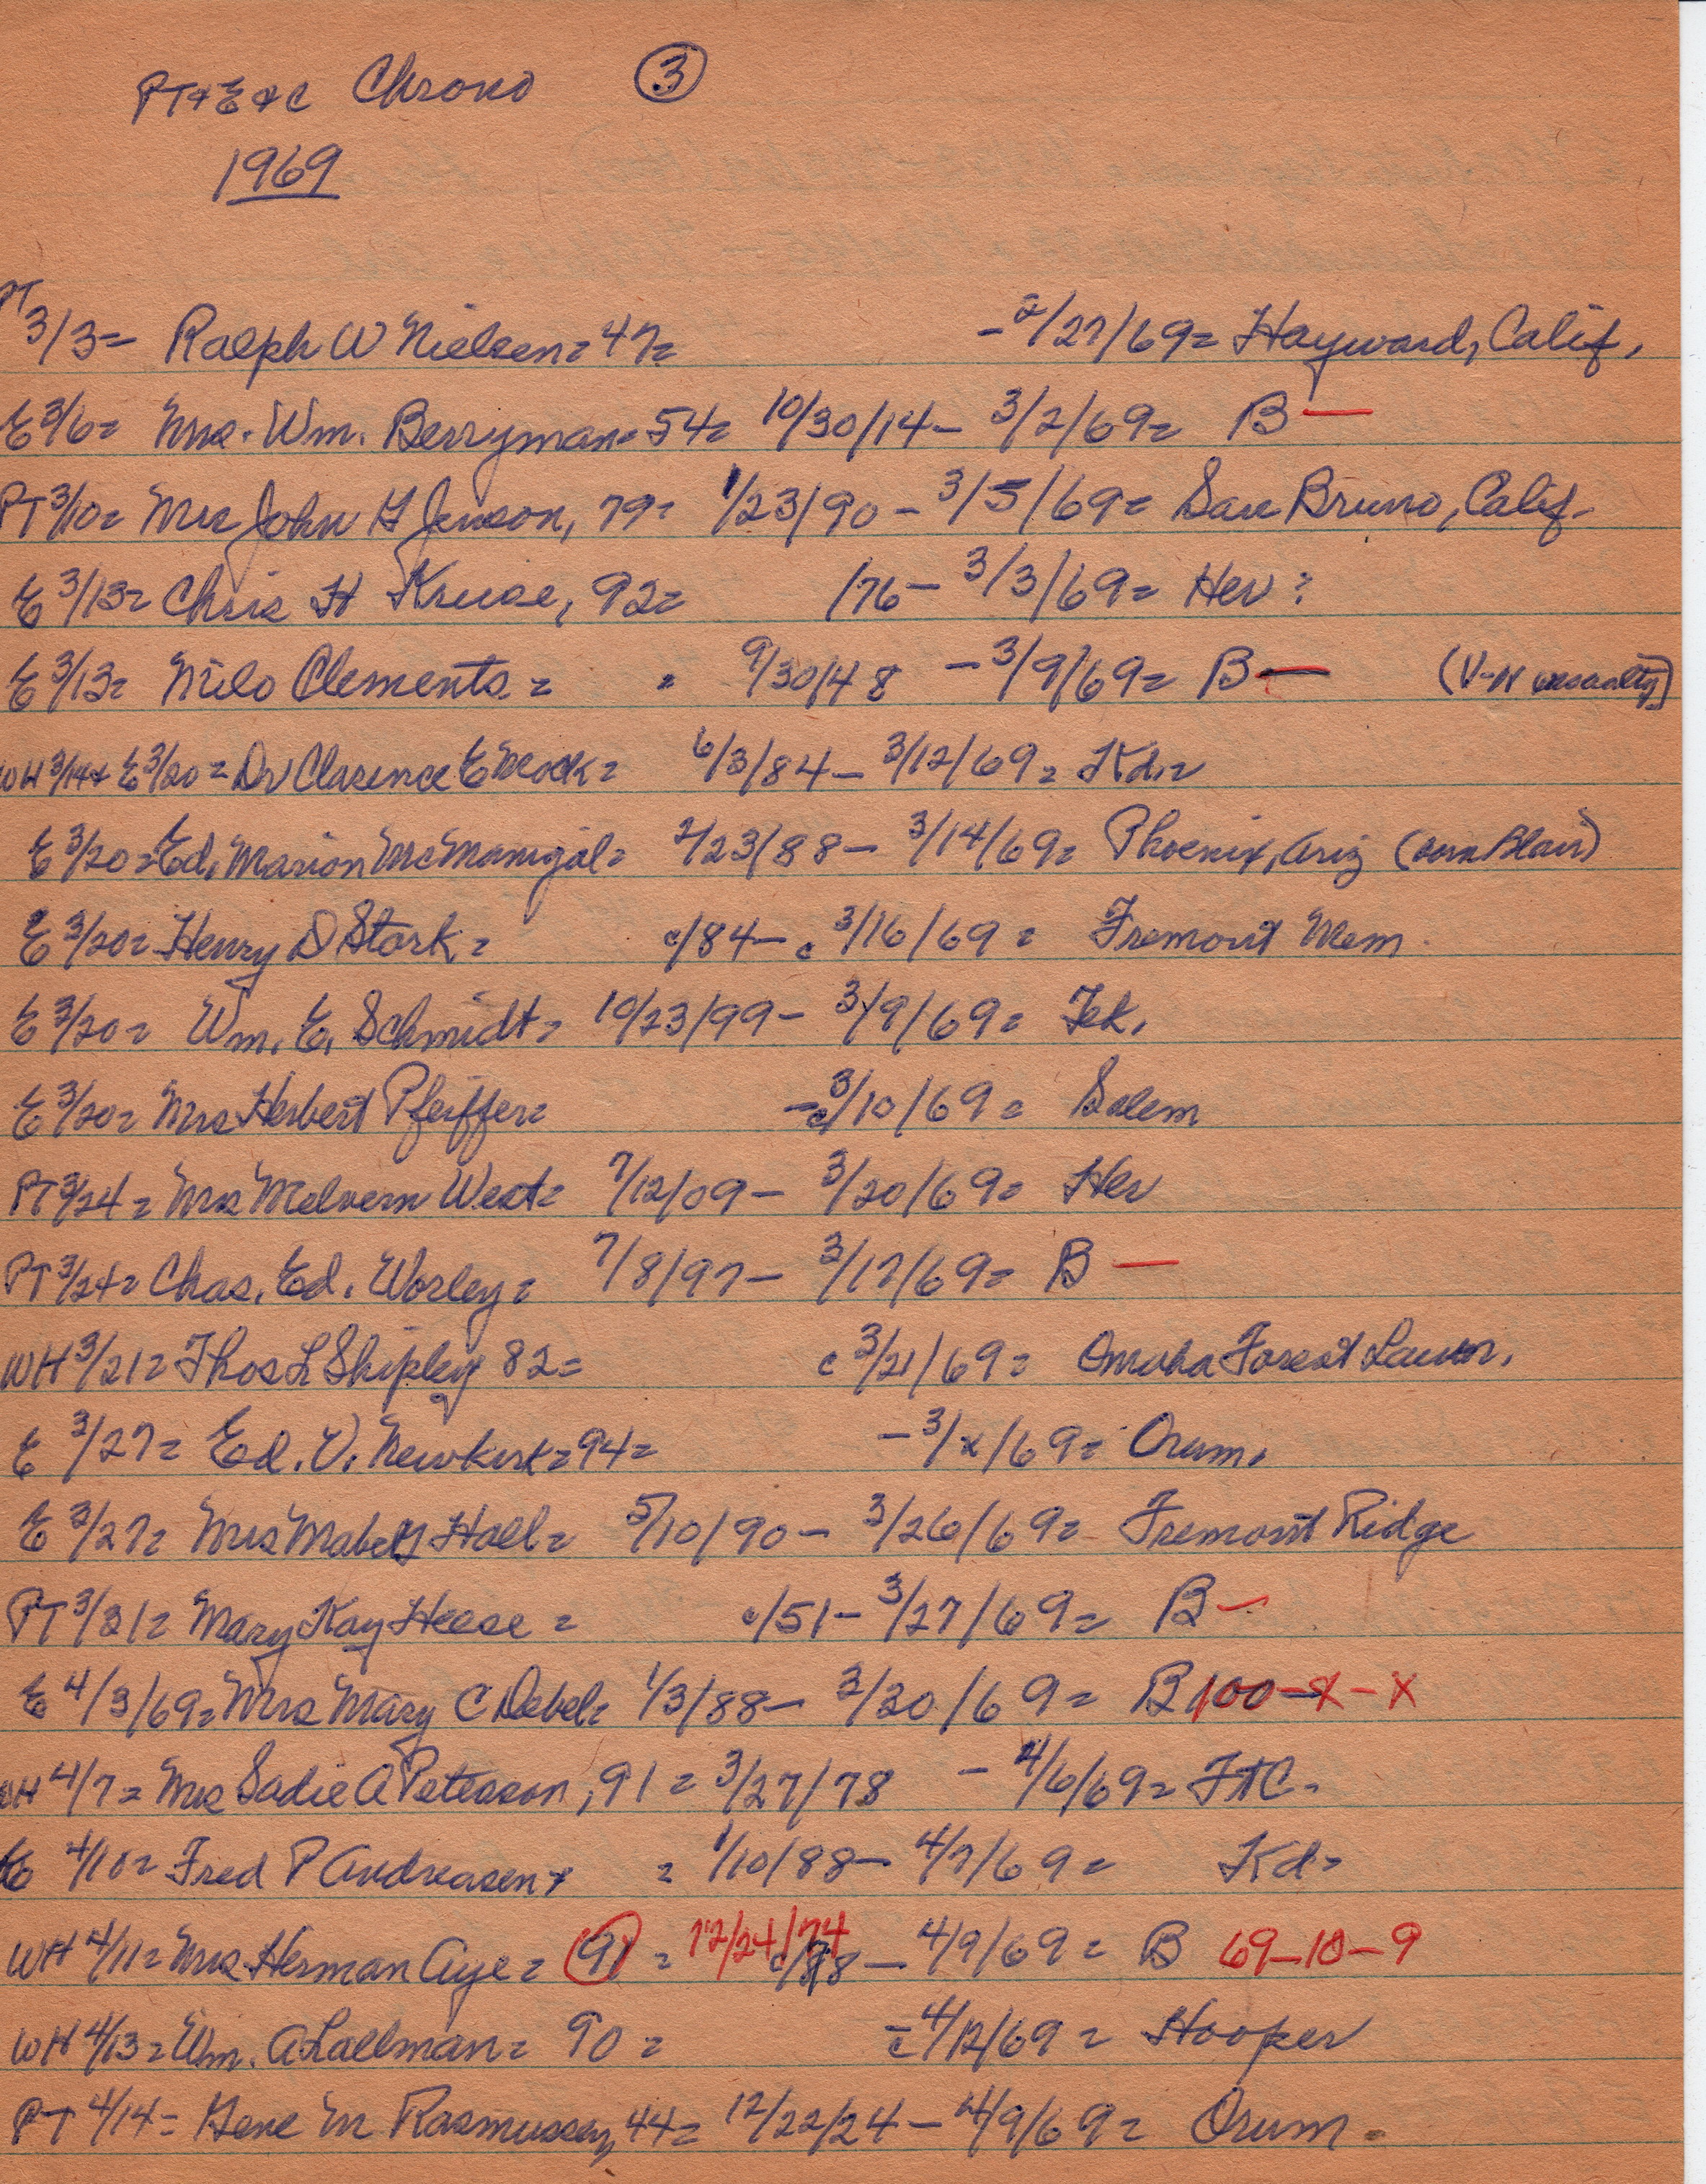 PT & E & C Chrono ③
1969
PT 3/3= Ralph W Nielsen= 47= -2/27/69= Hayward, Calif.
E 3/6= Mrs. Wm. Berryman= 54= 10/30/14- 3/2/69= B —
PT 3/10= Mrs John G Jenson, 79= 1/23/90 - 3/5/69= San Bruno, Calif.
E 3/13= Chris H Kruse, 92= /76- 3/3/69= Her?
E 3/13= Milo Clements= = 9/30/48 - 3/9/69= B — (V-N casualty)
WH 3/14 & E 3/20= Dr Clarence E Mock= 6/3/84- 3/12/69= Kd.=
E 3/20= Ed. Marion McManigal= 2/23/88- 3/14/69= Phoenix, Ariz (born Blair)
E 3/20= Henry D Stork= c/84- c 3/16/69= Fremont Mem.
E 3/20= Wm. E. Schmidt= 10/23/99- 3/9/69= Tek.
E 3/20= Mrs Herbert Pfeiffer= -c 3/10/69= Salem
PT 3/24= Mrs Melvern West= 7/12/09- 3/20/69= Her
PT 3/24= Chas. Ed. Worley= 7/8/97- 3/17/69= B —
WH 3/21= Thos L Shipley 82= c 3/21/69= Omaha Forest Lawn.
E 3/27= Ed. V. Newkirk= 94= - 3/x/69= Orum.
E 3/27= Mrs Mabel Hall= 5/10/90- 3/26/69= Fremont Ridge
PT 3/31= Mary Kay Heese= c/51- 3/27/69= B —
E 4/3/69= Mrs Mary C Debel= 1/3/88- 3/30/69= B 100-x-x
WH 4/7= Mrs Sadie A Peterson, 91= 3/27/78 - 4/6/69= FtC.
E 4/10= Fred P Andreasen = 1/10/88- 4/7/69= Kd=
WH 4/11= Mrs Herman Aye= 91 = 12/24/74 c/78- 4/9/69= B 69-10-9
WH 4/13= Wm. A Lallman= 90= -c 4/12/69= Hooper
PT 4/14- Gene M Rasmussen, 44= 12/22/24- 4/9/69= Orum.